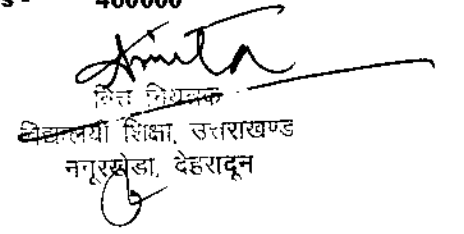 s - 460000
Amita
वित्त नियंत्रक
विद्यालयी शिक्षा, उत्तराखण्ड
ननूरखेडा, देहरादून